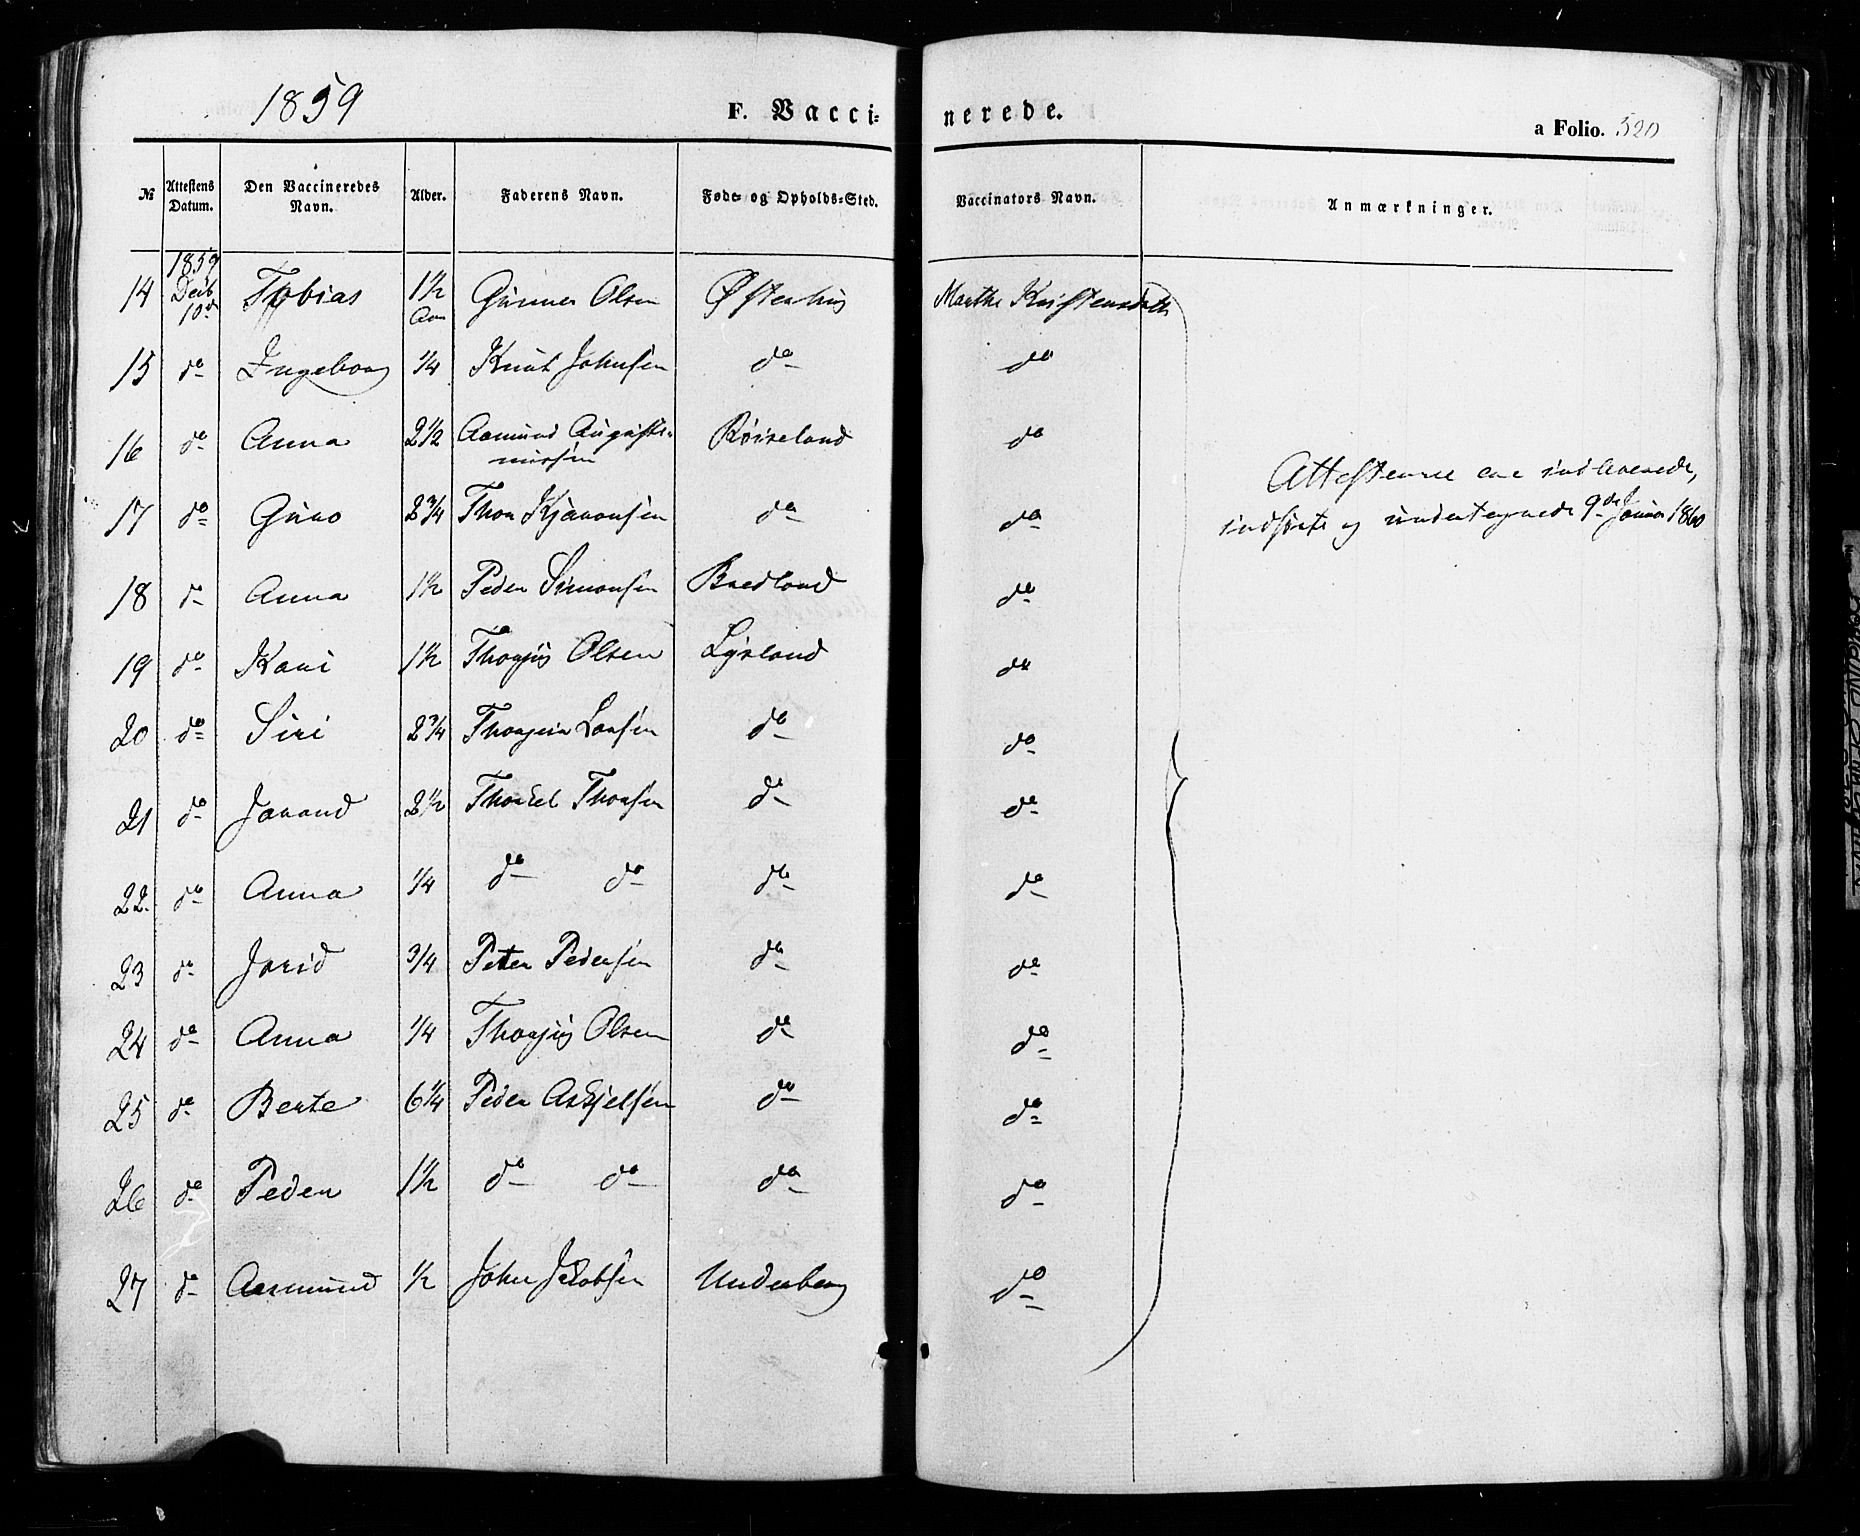 1859 F. Vacci= nerede. a Folio. 520
№ Attestens Datum. Den Vaccineredes Navn. Alder. Faderens Navn. Føde- og Opholds-Sted. Vaccinators Navn. Anmærkninger.
1859
14 Decb 10de Tobias 1½ Aar Gunner Olsen Østenhus Marthe Kristensdatt
15 do Ingeborg ¼ Knut Johnsen do do
16 do Anna 2½ Aamund Augusti- Røiseland do
nussen
Attesterne ere indleverede,
17 do Guro 2¾ Thor Kjæronsen do do
indførte og undertegnede 9de Januar 1860
18 do Anna 1½ Peder Simonsen Bredland do
19 do Kari 1½ Thorjus Olsen Lysland do
20 do Siri 2¾ Thorjus Larsen do do
21 do Jorand 2½ Thorkel Thorsen do do
22. do Anna ¼ do do do do
23 do Jorid ¾ Peter Pedersen do do
24 do Anna ¼ Thorjus Olsen do do
25 do Berte 6¼ Peder Askjelsen do do
26 do Peder 1½ do do do do
27 do Aasmund ½ John Jakobsen Underberg do